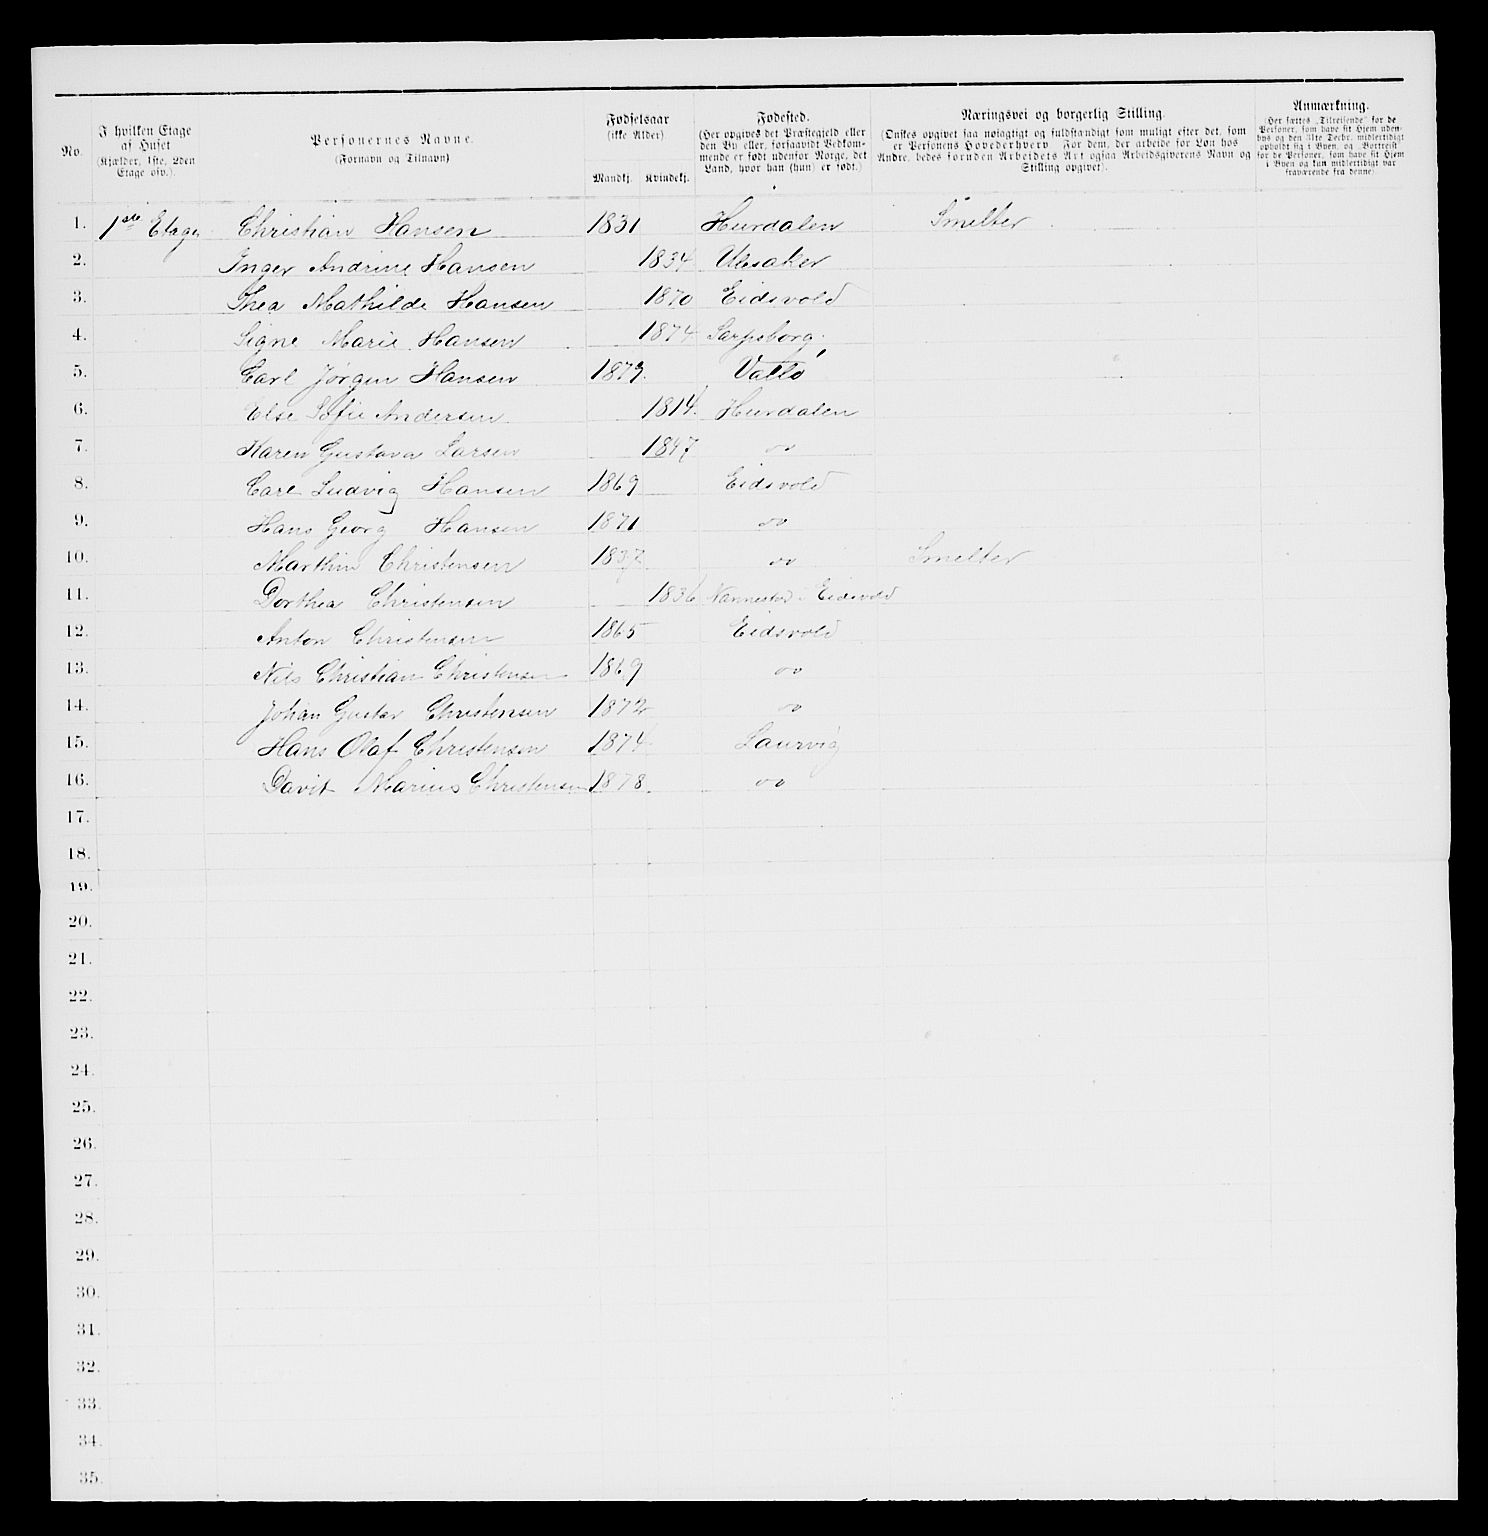 No.
I hvilken Etage
af Huset
(Kjælder, 1ste, 2den
Etage osv.).
Personernes Navne.
(Fornavn og Tilnavn)
Fødselsaar
(ikke Alder)
Mandkj. Kvindekj.
Fødested.
(Her opgives det Præstegjeld eller
den By eller, forsaavidt Vedkom-
mende er født udenfor Norge, det
Land, hvor han (hun) er født.)
Næringsvei og borgerlig Stilling.
(Ønskes opgivet saa nøiagtigt og fuldstændigt som muligt efter det, som
er Personens Hovederhverv For dem, der arbeide for Løn hos
Andre, bedes foruden Arbeidets Art ogsaa Arbeidsgiverens Navn og
Stilling opgivet).
Anmærkning.
(Her sættes „Tilreisende" for de
Personer, som have sit Hjem uden-
bys og den 31te Decbr. midlertidigt
opholdt sig i Byen, og „Bortreist"
for de Personer, som have sit Hjem
i Byen og kun midlertidigt var
fraværende fra denne)
1. 1ste Etage Christian Hansen 1831 Hurdalen Smelter
2. Inger Andrine Hansen 1834 Ullsaker
3. Thea Mathilde Hansen 1870 Eidsvold
4. Signe Marie Hansen 1874 Sarpsborg
5. Carl Jørgen Hansen 1879 Vallø
6. Else Sofie Andersen 1814 Hurdalen
7. Karen Gustava Larsen 1847 oo
8. Carl Ludvig Hansen 1869 Eidsvold
9. Hans Georg Hansen 1871 oo
10. Marthin Christensen 1837 oo Smelter
11. Dorthea Christensen 1836 Nannestad Eidsvold
12. Anton Christensen 1865 Eidsvold
13. Nils Christian Christensen 1869 oo
14. Johan Gustav Christensen 1872 oo
15. Hans Olaf Christensen 1874 Laurvig
16. Davit Marius Christensen 1878 oo
17.
18.
19.
20.
21.
22.
23.
24.
25.
26.
27.
28.
29.
30.
31.
32.
33.
34.
35.